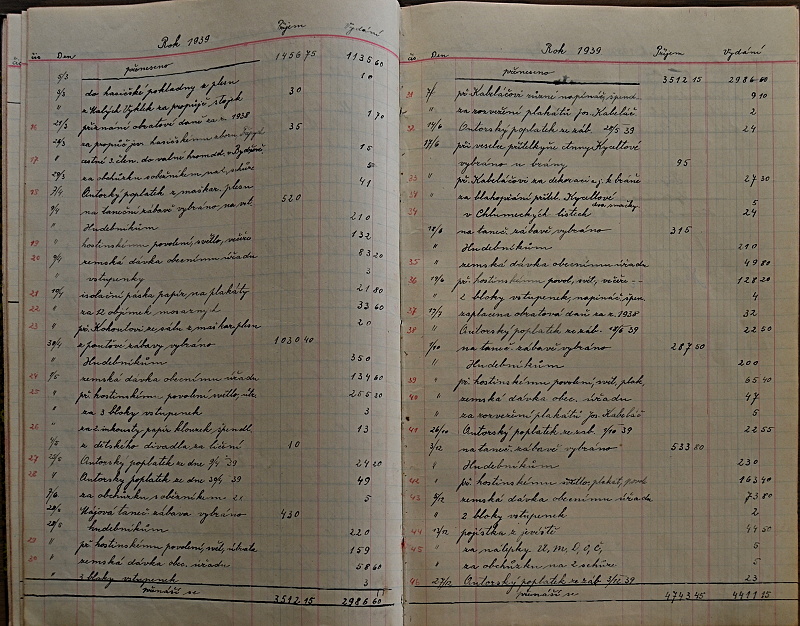 Rok 1939
Příjem
Vydání
čís Den
přeneseno 1456 75 1135 60
5/3 do hasičské pokladny z plesu 10
9/3 z Malých Výklek za propůjč. stojek 30
" přiznání obratové daně za r. 1938 1 70
16 21/3 za propůjč. jev. hasičskému sboru 35
29/3 cestné 3 člen. do valné hromad. v 15
17 " za obchůzku solečníkem na čl. schůze 5
18 7/4 Autorský poplatek z maškar. plesu 41
9/4 na taneční zábavě vybráno na vst. 520
" Hudebníkům 210
19 " hostinskému povolení, světlo, večeře 132
20 9/4 zemská dávka obecnímu úřadu 83 20
" vstupenky 3
21 19/4 isolační páska papír, na plakáty 21 80
22 " za 12 objímek mosazných 33 60
23 " př. Kohoutovi ze sálu z maškar. plesu 20
30/4 z pouťové zábavy vybráno 1030 40
" Hudebníkům 350
24 9/5 zemská dávka obecnímu úřadu 134 60
25 " př. hostinskému povolení, světlo, 265 20
" za 3 bloky vstupenek 3
26 " za 2 inkousty, papír klouzek, špendl. 13
z dětského divadla, za líčení 10
27 Autorský poplatek ze dne 9/4 39 24 20
28 " Autorský poplatek ze dne 30/4 39 49
7/6 za obchůzku solečníkem 2x 5
28/5 Májová taneč. zábava vybráno 430
28/5 hudebníkům 220
29 " př. hostinskému povolení, svět, 159
30 " zemská dávka obec. úřadu 58 60
" 3 bloky vstupenek 3
přenáší se 3512 15 2986 60
Rok 1939
čís Den
Příjem
Vydání
přeneseno 3512 15 2986 60
31 př. Kabeláčová různé napínáč, špend. 9 10
" za rozvežení plakátů Jos. Kabeláč 2
32 14/6 Autorský poplatek ze záb. 28/5 39 24
17/6 při veselce přítelkyně Anny Kyceltové
vybráno u brány 95
33 " př. Kabeláčovi za dekoraci j. k bráně 27 30
34 " za blahopřání přítel. Kyceltové 5
34 v Chlumeckých listech 24
18/6 na taneč. zábavě vybráno 315
" Hudebníkům 210
35 " zemská dávka obecnímu úřadu 49 80
36 19/6 př. hostinskému povol, svět, večeře 128 20
" 2 bloky vstupenek, napínáč, špen. 4
37 17/7 zaplacena obratová daň za r. 1938 32
38 " Autorský poplatek ze záb. 18/6 39 22 50
1/10 na taneč. zábavě vybráno 287 50
" Hudebníkům 200
39 " př. hostinskému povolení, svět, plak, 65 40
40 " zemská dávka obec. úřadu 47
" za rozvežení plakátů Jos. Kabeláč 5
41 26/10 Autorský poplatek ze záb. 1/10 39 22 55
3/12 na taneč. zábavě vybráno 533 80
" Hudebníkům 230
42 " př. hostinskému světlo, plakát, povol 163 40
43 zemská dávka obecnímu úřadu 73 80
" 2 bloky vstupenek 2
44 pojistka z jeviště 44 50
45 " za nálepky Ú, M, D, O, Č, 5
" za obchůzku na 2 schůze 5
46 27/12 Autorský poplatek ze záb 3/12 39 23
přenáší se 4743 45 4411 15